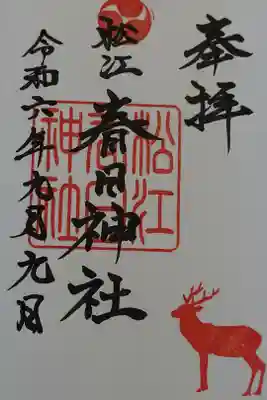 奉拝
松江
春日神社
松江
春日
神社
令和六年九月九日